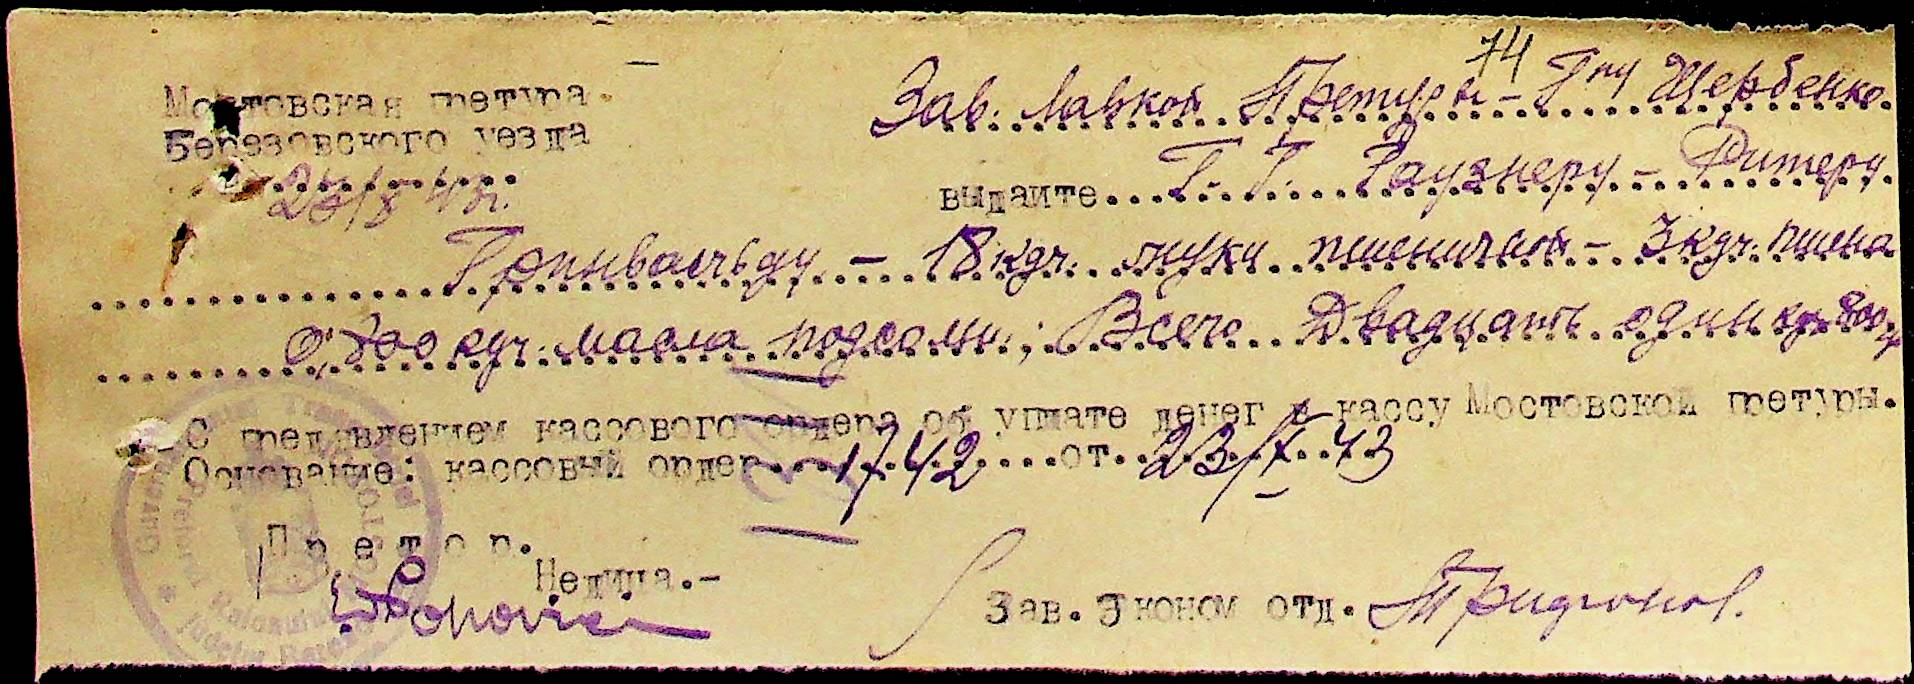 74
Мостовская претура.
Березовского уезда
23/X 43г.
Зав. Лавкой Претуры – Г-ну Щербенко
выдайте... Г. Г. Раузнеру – Ритеру
Гринвальду – 18 кгч. муки пшеничной – 3 кгч. пшена
0,800 кгч. масла подсолн.; Всего Двадцать один кгр 800 гр
С предявлением кассового ордера об уплате денег в кассу Мостовской претуры.
Основание: кассовый ордер...1742....от. 23/X 43
Претор.
Недица.–
Зав. Эконом отд. Трифонов.
Guvernământul Transnistriei
Judeţul Berezovca